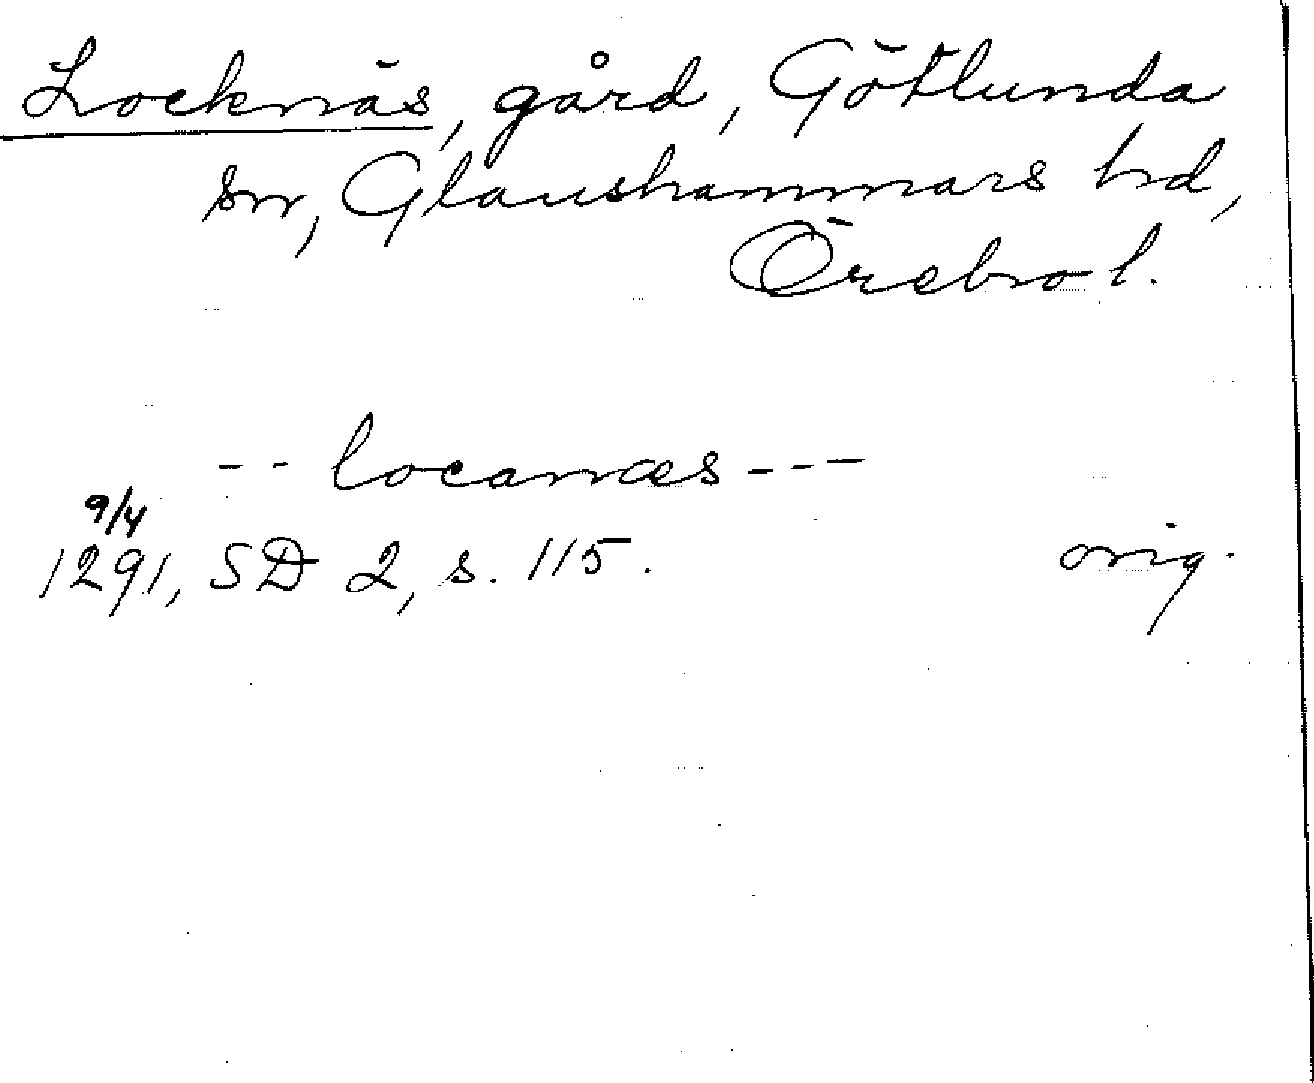 Locknäs, gård, Götlunda
sn, Glanshammars hd,
Örebro l.
-- locanæs ---
9/4
1291, SD 2, s. 115.
orig.